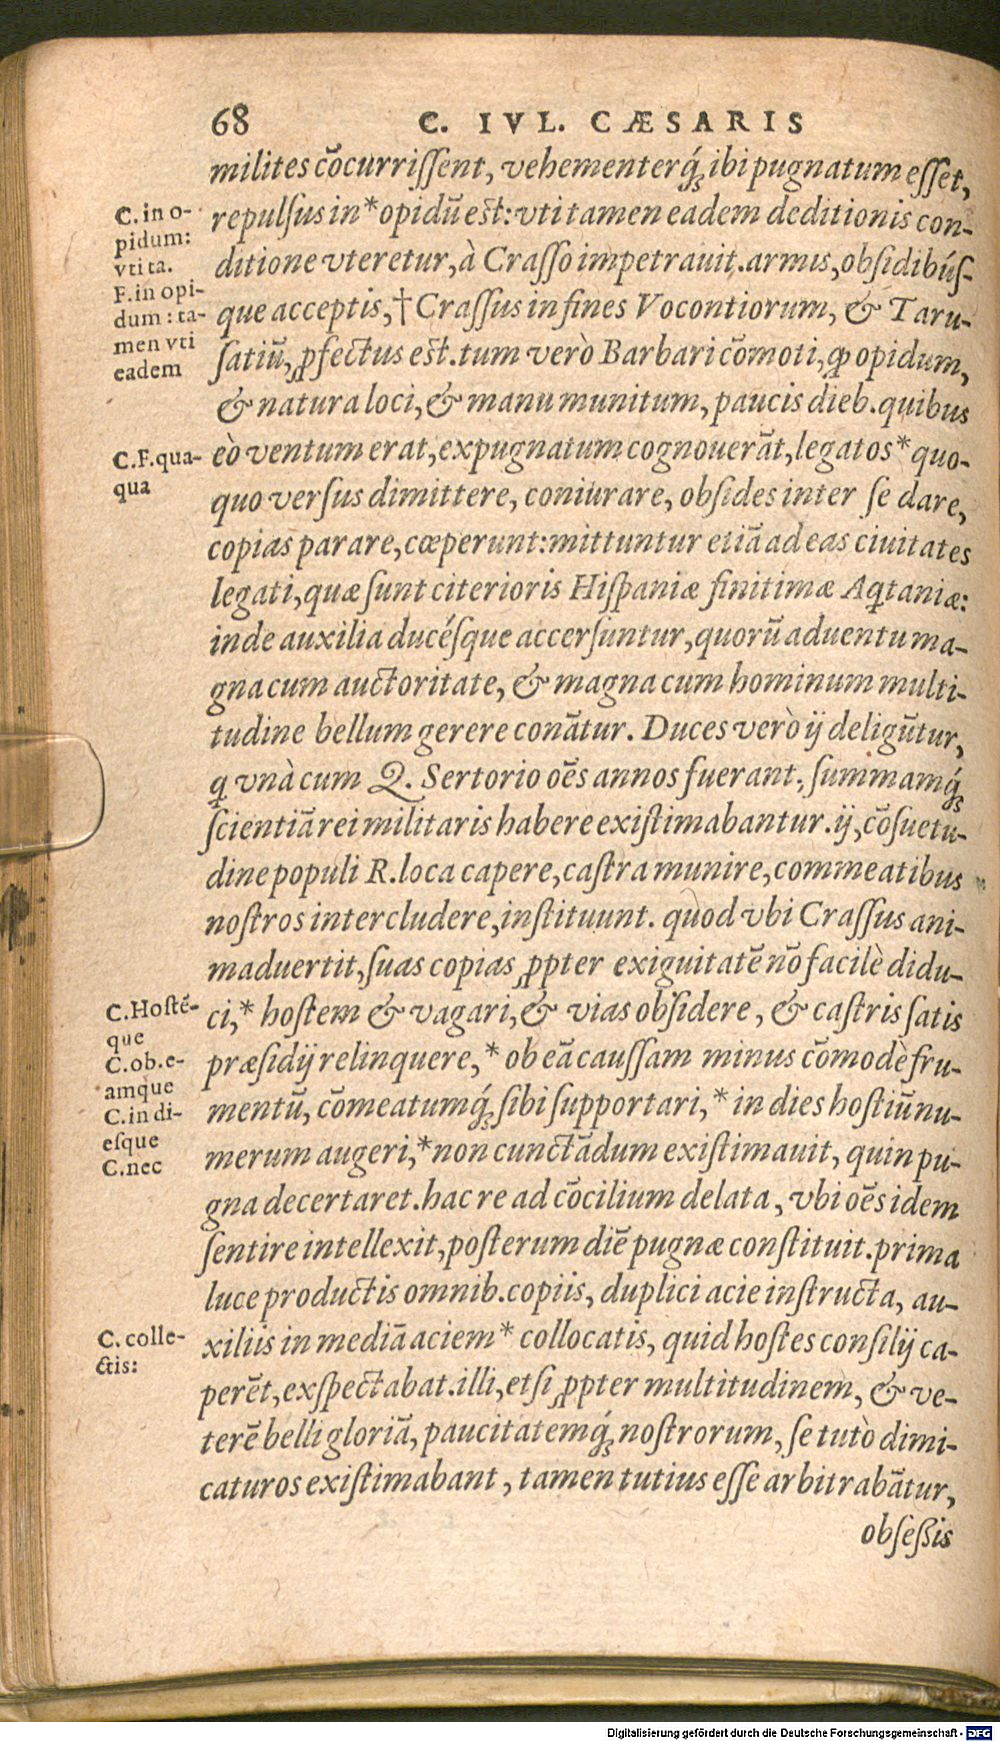 68 C. IVL. CÆSARIS
milites cōcurriſſent, vehementerq́ꝫ ibi pugnatum eſſet,
repulſus in * opidū est: vti tamen eadem deditionis con-
ditione vteretur, à Craſſo impetrauit. armis, obſidibúſ-
que acceptis, † Craſſus in fines Vocontiorum, & Taru-
ſatiū, ꝓfectus est. tum verò Barbari cōmoti, ꝙ opidum,
& natura loci, & manu munitum, paucis dieb. quibus
eò ventum erat, expugnatum cognouerāt, legatos * quo-
quo verſus dimittere, coniurare, obſides inter ſe dare,
copias parare, cœperunt: mittuntur etiā ad eas ciuitates
legati, quæ ſunt citerioris Hiſpaniæ finitimæ Aqtaniæ:
inde auxilia ducéſque accerſuntur, quorū aduentu ma-
gna cum auctoritate, & magna cum hominum multi-
tudine bellum gerere conātur. Duces verò ij deligūtur,
q vnà cum Q. Sertorio oēs annos fuerant, ſummamq́ꝫ
ſcientiā rei militaris habere exiſtimabantur. ij, cōſuetu-
dine populi R. loca capere, caſtra munire, commeatibus
noſtros intercludere, inſtituunt. quod vbi Craſſus ani-
maduertit, ſuas copias ꝓpter exiguitatē nō facilè didu-
ci, * hoſtem & vagari, & vias obſidere, & caſtris ſatis
præſidij relinquere, * ob eā cauſſam minus cōmodè fru-
mentū, cōmeatumq́ꝫ ſibi ſupportari, * in dies hoſtiū nu-
merum augeri, * non cunctādum exiſtimauit, quin pu-
gna decertaret. hac re ad cōcilium delata, vbi oēs idem
ſentire intellexit, poſterum diē pugnæ conſtituit. prima
luce productis omnib. copiis, duplici acie inſtructa, au-
xiliis in mediā aciem * collocatis, quid hoſtes conſilij ca-
perēt, exſpectabat. illi, etſi ꝓpter multitudinem, & ve-
terē belli gloriā, paucitatemq́ꝫ noſtrorum, ſe tutò dimi-
caturos exiſtimabant, tamen tutius eſſe arbitrabātur,
obſeßis
C. in o-
pidum:
vti ta.
F. in opi-
dum: ta-
men vti
eadem
C.F. qua-
qua
C. Hoſtē-
que
C. ob. e-
amque
C. in di-
eſque
C. nec
C. colle-
ctis:
Digitalisierung gefördert durch die Deutsche Forschungsgemeinschaft - DFG